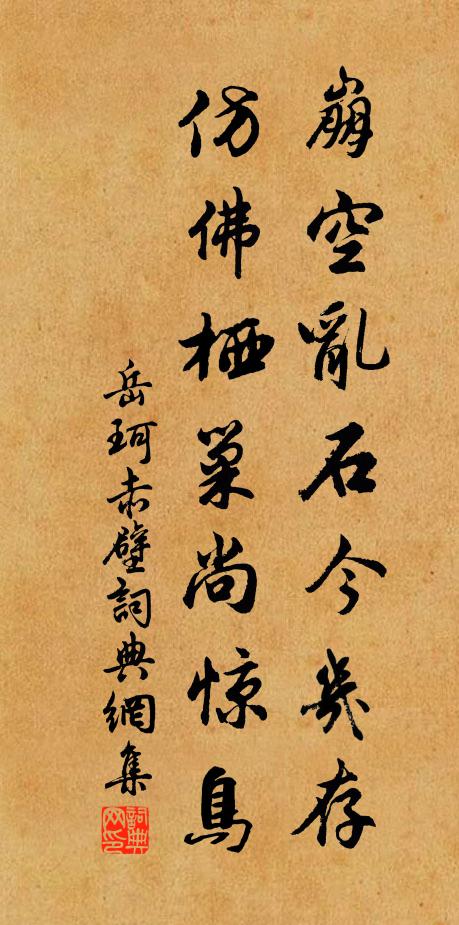 崩空亂石今幾存
仿佛栖巢尚惊鳥
岳珂赤壁詞典網集
詞典网印